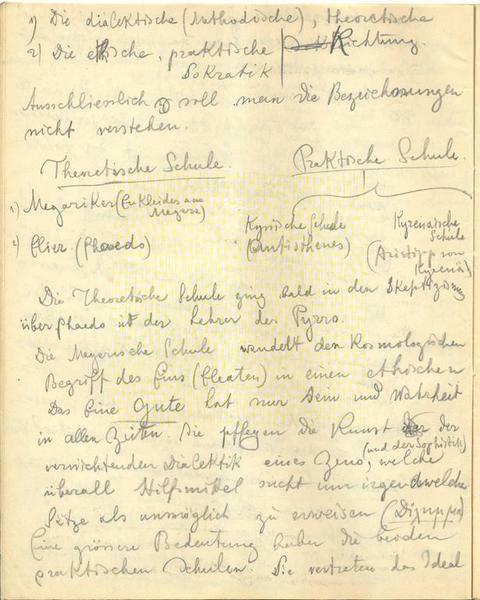 1) Die dialektische (Methodische), theoretische
2) Die ethische, praktische Richtung.
Sokratik
Ausschliesslich soll man die Bezeichnungen
nicht verstehen.
Theoretische Schule. Praktische Schule.
1) Megariker (Eukleides aus Megara)
Kynische Schule Kyrenaische Schule
2) Elier (Phaedo) (Antisthenes) (Aristipp von Kyrenä)
Die Theoretische Schule ging bald in den Skeptizismus
über Phaedo ist der Lehrer des Pyrro.
Die Megarische Schule wandelt den Kosmologischen
Begriff des Eins (Eleaten) in einen ethischen
Das Eine Gute hat nur Sein und Wahrheit
in allen Zeiten. Sie pflegen die Kunst der
(und der Sophistik)
vernichtenden Dialektik eines Zeno, welche
überall Hilfsmittel sucht um irgendwelche
Sätze als unmöglich zu erweisen
Eine grössere Bedeutung haben die beiden
praktischen Schulen. Sie vertreten das Ideal